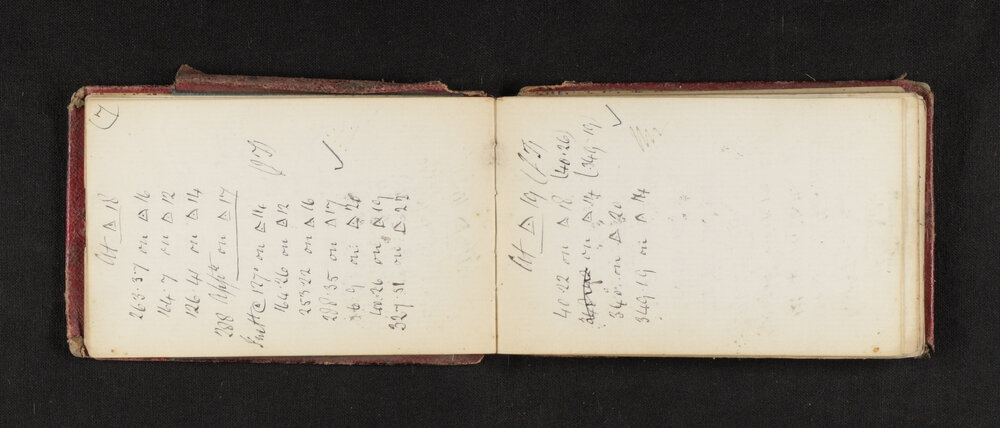 (7
At △ 18
253.37 on △ 16
164.7 on △ 12
126.41 on △ 14
288 on △ 17
@ 127° on △ 14 (JT)
164.26 on △ 12
253.22 on △ 16
288.35 on △ 17
36.9 on △
40.26 on △ 19
327.51 on △
✓
At △ 19 (JT)
40.22 on △ 18 (40.26)
on △ 14 (349.19
340. on △ 20
349.19 on △ 14
✓